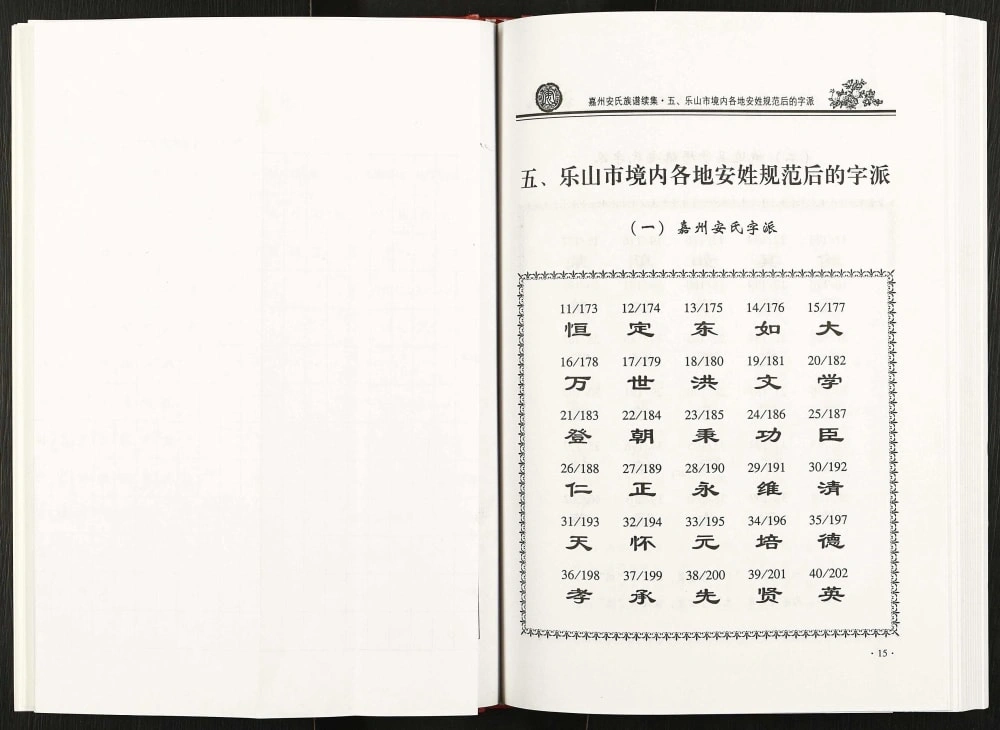 嘉州安氏族谱续集·五、乐山市境内各地安姓规范后的字派
五、乐山市境内各地安姓规范后的字派
(一) 嘉州安氏字派
11/173 12/174 13/175 14/176 15/177
恒 定 东 如 大
16/178 17/179 18/180 19/181 20/182
万 世 洪 文 学
21/183 22/184 23/185 24/186 25/187
登 朝 秉 功 臣
26/188 27/189 28/190 29/191 30/192
仁 正 永 维 清
31/193 32/194 33/195 34/196 35/197
天 怀 元 培 德
36/198 37/199 38/200 39/201 40/202
孝 承 先 贤 英
·15·